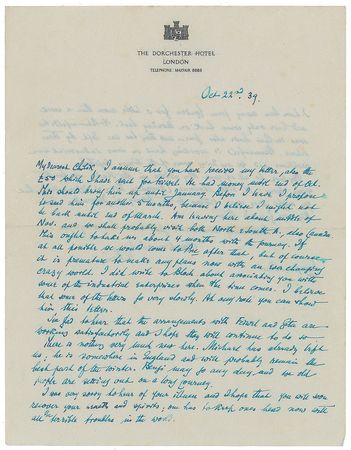 THE DORCHESTER HOTEL
LONDON
TELEPHONE MAYFAIR 8888
Oct 22nd. 39.
My dearest I assume that you have received my letter, also the
£50 which I have sent for Fowel. He had money until end of Oct.
This should bring him up until January. Before I leave I propose
to send him for another 3 months, because I believe I might not
be back until end of March. Am leaving here about middle of
Nov. and we shall probably visit both North & South A., also Canada
This ought to take us about 4 months with the journey. If
at all possible we would come to after that, but of course
it is premature to make any plans now with an ever changing
crazy world. I did write to Bloch about associating you with
some of the industrial enterprises when the time comes. I believe
that some of the letters go very slowly. At any rate you can show
him this letter.
So glad to hear that the arrangements with and are
working satisfactorily and I hope they will continue to do so
There is nothing very much new here. Michael has already left
us; he is somewhere in England and will probably remain the
best part of the winter. Benji may go any day, and we old
people are setting out on a long journey.
I was very sorry to hear of your illness and I hope that you will soon
recover your and spirits; one has to keep one's head now with
all the terrible troubles in the world.